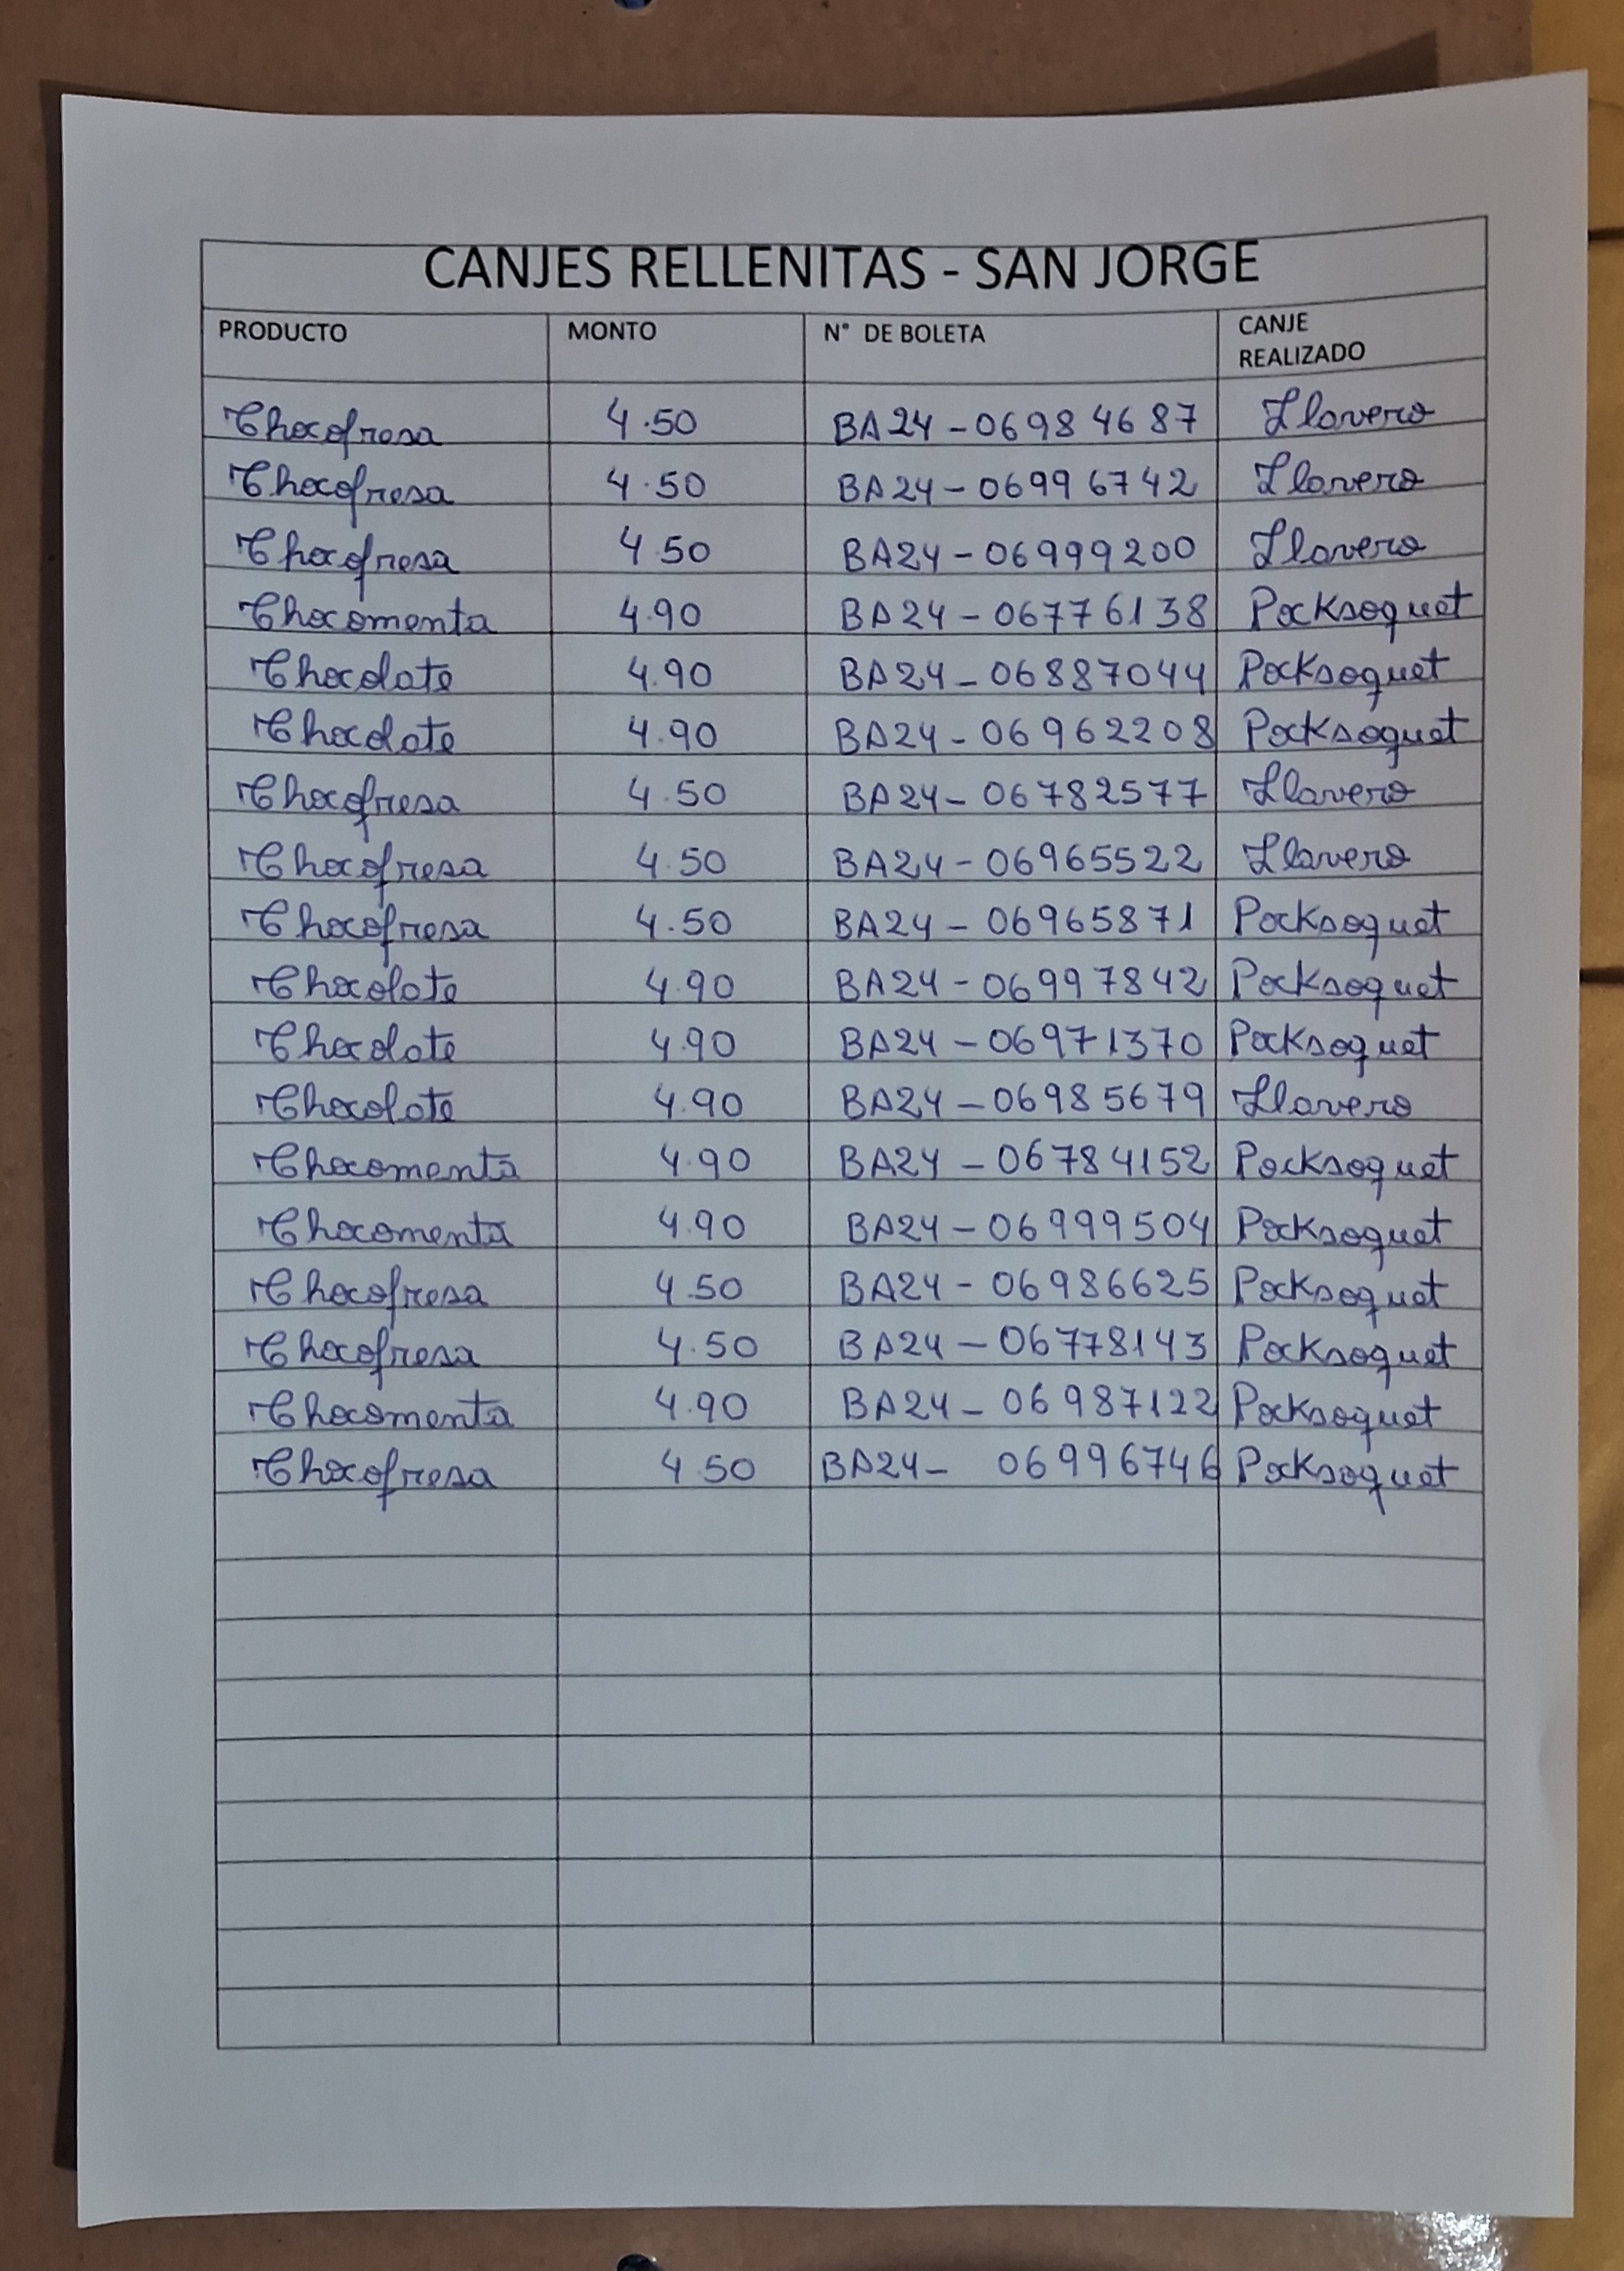 CANJES RELLENITAS - SAN JORGE
PRODUCTO MONTO N° DE BOLETA CANJE REALIZADO
Chocofresa 4.50 BA24-06984687 Llavero
Chocofresa 4.50 BA24-06996742 Llavero
Chocofresa 4.50 BA24-06999200 Llavero
Chocomenta 4.90 BA24-06776138 Pocksoquet
Chocolate 4.90 BA24-06887044 Pocksoquet
Chocolate 4.90 BA24-06962208 Pocksoquet
Chocofresa 4.50 BA24-06782577 Llavero
Chocofresa 4.50 BA24-06965522 Llavero
Chocofresa 4.50 BA24-06965871 Pocksoquet
Chocolate 4.90 BA24-06997842 Pocksoquet
Chocolate 4.90 BA24-06971370 Pocksoquet
Chocolate 4.90 BA24-06985679 Llavero
Chocomenta 4.90 BA24-06784152 Pocksoquet
Chocomenta 4.90 BA24-06999504 Pocksoquet
Chocofresa 4.50 BA24-06986625 Pocksoquet
Chocofresa 4.50 BA24-06778143 Pocksoquet
Chocomenta 4.90 BA24-06987122 Pocksoquet
Chocofresa 4.50 BA24-06996746 Pocksoquet